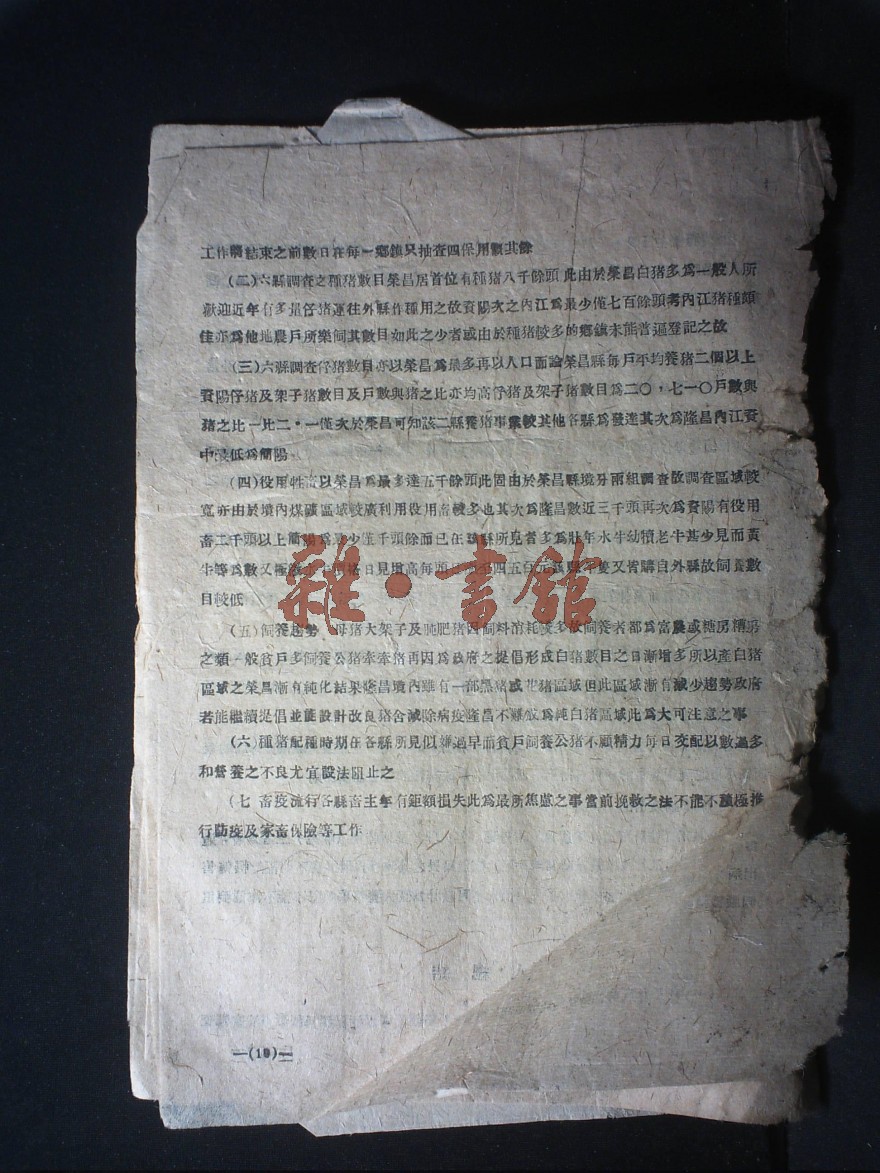 工作將結束之前數日在每一鄉鎮只抽查四保用額其餘
(二)六縣調查之種猪數目榮昌居首位有種猪八千餘頭此由於榮昌白猪多為一般人所
歡迎近年有多量仔猪運往外縣作種用之故資陽次之內江為最少僅七百餘頭考內江猪種頗
佳亦為他地農戶所樂飼其數目如此之少者或由於種猪較多的鄉鎮未能普遍登記之故
(三)六縣調查仔猪數目亦以榮昌為最多再以人口面論榮昌縣每戶平均養猪二個以上
資陽仔猪及架子猪數目及戶數與猪之比亦均高仔猪及架子猪數目為二〇，七一〇戶數與
猪之比一比二·一僅次於榮昌可知該二縣養猪事業較其他各縣為發達其次為隆昌內江資
中最低為簡陽
(四)役用牲畜以榮昌為最多達五千餘頭此固由於榮昌縣境分兩組調查故調查區域較
寬亦由於境內煤礦區域較廣利用役用畜較多也其次為隆昌數近三千頭再次為資陽有役用
畜二千頭以上簡陽為最少僅千頭餘而已在縣所見者多為壯年水牛幼犢老牛甚少見而黃
牛等為數又極微價格日見增高每頭至四五百元縣年後又皆購自外縣故飼養數
目較低
(五)飼養趨勢 母猪大架子及肫肥猪因飼料消耗較多故飼養者都為富農或糖房糟房
之類一般貧戶多飼養公猪牽牽猪再因為政府之提倡形成白猪數目之日漸增多所以產白猪
區域之榮昌漸有純化結果隆昌境內雖有一部黑猪或花猪區域但此區域漸有減少趨勢政府
若能繼續提倡並能設計改良猪舍減除病疫隆昌不難成為純白猪區域此為大可注意之事
(六)種猪配種時期在各縣所見似嫌過早而貧戶飼養公猪不顧精力每日交配以數過多
和督養之不良尤宜設法阻止之
(七 畜疫流行各縣畜主年有鉅額損失此為最所焦慮之事當前挽救之法不能不積極推
行防疫及家畜保險等工作
—(10)—
雜·書館